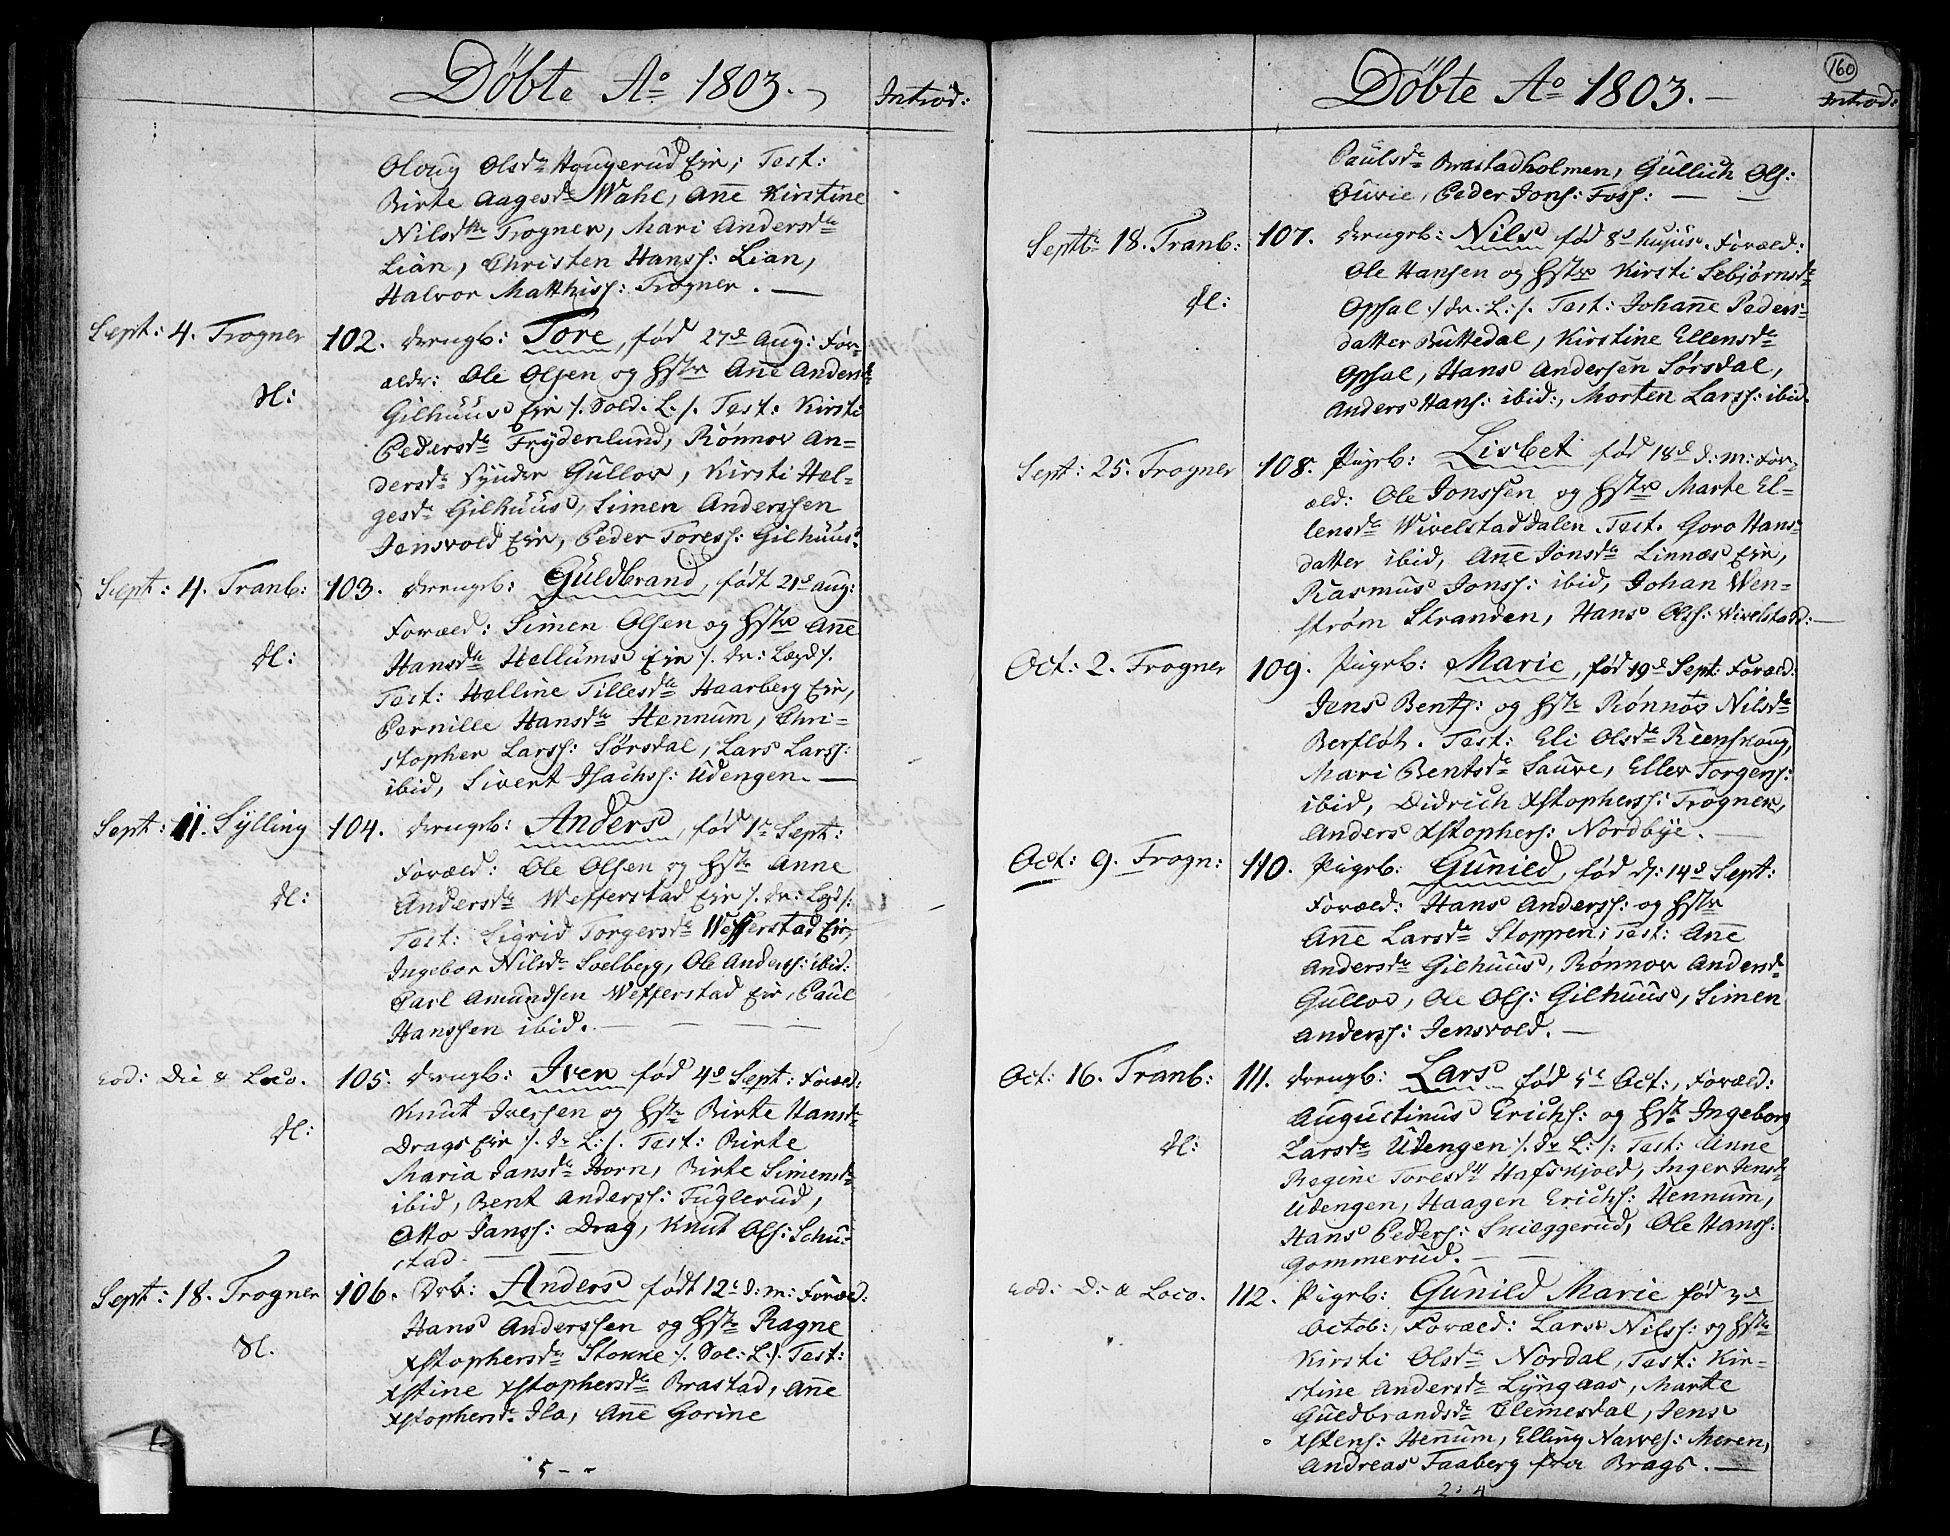 Döbte Ao 1803.
Introd:
Oloug Olsdr Hougerud Eje; Test:
Birte Aagesdr Wahl, Ane Kirstine
Nilsdtr Trogner, Mari Andersdr
Lian, Christen Hanss: Lian,
Halvor Matthiss: Trogner. —
Sept: 4. Trogner 102. drengb: Tore, föd 27d Aug: For-
ældr: Ole Olsen og Hstr Ane Andersdr
dl: Gilhuus Eje /. Sold. L: /. Test: Kirsti
Pedersdr Frydenlund, Rönnov An-
dersdr Gullov, Kirsti Hel-
gesdr Gilhuus, Simen Anderssen
Jensvold Eje, Peder Toress: Gilhuus:
Sept: 4. Tranb: 103. drengb: Guldbrand, födt 21d aug:
Foræld: Simen Olsen og Hstr Ane
dl: Hansdr Hellums Eje /. dr: Lægd /.
Test: Helline Tillesdr Haarberg Eje,
Pernille Hansdr Hennum, Chri-
stopher Larss: Sörsdal, Lars Larss:
ibid, Sivert Isachss: Udengen. —
Sept: 11. Sylling 104. drengb: Anders, föd 1d Sept:
Foræld: Ole Olsen og Hstr Anne
dl: Andersdr Wefferstad Eje /. dr: Lægd /:
Test: Sigrid Torgersdr Wefferstad Eje,
Ingebor Nilsdr Solberg, Ole Anders: ibid:
Carl Amundsen Wefferstad Eje, Paul
Hanssen ibid. — — —
eod: Die & Loco. 105. drengb: Iver föd 4d Sept: Foræld:
Knut Iversen og Hstr Birte Hansdr
dl: Drags Eje /. dr L: /. Test: Birte
Maria Jansdr Horn, Birte Simensdr
ibid, Bent Anderss: Fuglerud,
Otto Janss: Drag, Knut Ols: Schu-
stad — —
Sept: 18. Trogner 106. Drb: Anders födt 12d d: m: Foræld:
Hans Anderssen og Hstr Ragne
dl. Xstophersdr Stokne /. Sol: L: /. Test:
Xstine Xstophersdr Brastad, Ane
Xstophersdr Ila, Ane Gorine
5 —
160
Döbte Ao 1803. —
Introd:
Paulsdr Brastadholmen, Gullich Ols:
Juvie, Peder Jons: Foss: —
Septbr 18. Tranb: 107. drengb: Nils föd 8d hujus. Foræld:
Ole Hansen og Hstr Kirsti Sebjörnsdr
dl: Opsal /. dr. L: /. Test: Johane Peders-
datter Buttedal, Kirstine Ellensdr
Opsal, Hans Andersen Sörsdal,
Anders Hans: ibid:, Morten Larss: ibid.
Sept: 25. Trogner 108. Pigeb: Lisbet föd 18d d: m: For-
æld: Ole Jonssen og Hstr Marte El-
lensdr Wivelstaddalen. Test. Goro Hans-
datter ibid, Ane Jonsdr Linnæs Eje,
Rasmus Jonss: ibid, Johan Wen-
ström Stranden, Hans Ols: Wivelstad: —
Oct: 2. Trogner 109. Pigeb: Marie, föd 19d Sept: Foræld:
Jens Bents: og Hstr Rönnov Nilsdr
Berflöt. Test: Eli Olsdr Reenskoug,
Mari Bentsdr Saure, Ellev Torgers:
ibid, Didrich Xstopherss: Trogner,
Anders Xstophers: Nordbye. —
Oct: 9. Trogn: 110. Pigeb: Gunild, föd d: 14d Sept:
Foræld: Hans Anderss: og Hstr
Ane Larsdr Stoppen; Test: Ane
Andersdr Gilhuus, Rönnov Andersdr
Gullov, Ole Ols: Gilhuus, Simen
Anderss: Jensvold. —
Oct: 16. Tranb: 111. drengb: Lars föd 5d Oct:, Foræld:
Augustinus Erichs: og Hstr Ingeborg
dl: Larsdr Udengen /. dr L: /: Test: Anne
Regine Toresdr Hafskjold, Inger Jensdr
Udengen, Haagen Erichs: Hennum,
Hans Peders: Snæggerud, Ole Hanss:
Gommerud. — —
eod: D: & Loco. 112. Pigeb: Gunild Marie föd 3d
Octob:, Foræld: Lars Nilss: og Hstr
Kirsti Olsdr Nordal, Test: Kir-
stine Andersdr Lyngaas, Marte
Guldbrandsdr Clemesdal, Jens
Xstens: Hennum, Elling Narves: Meren,
Andreas Faaberg fra Brags. —
2: 4